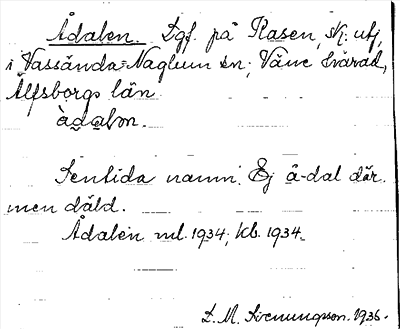 Ådalen. Lgf. på Rasen, Kj. utj.
i Vassända-Naglum sn; Väne härad,
Älfsborgs län
àdalən.
Sentida namn. Ej å-dal där.
men däld.
Ådalen ml. 1934; kb. 1934.
D. M. 1936.